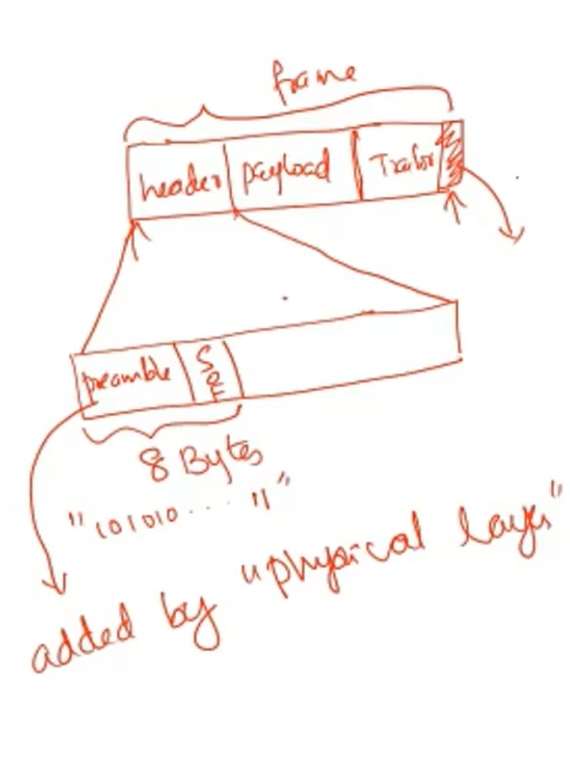 frame
header payload Trailor
preamble SOF
8 Bytes
"101010.... 11"
added by "physical layer"